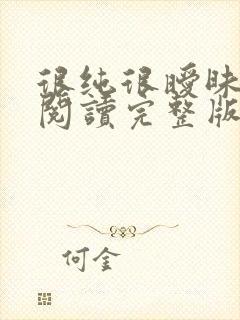 很纯很曖昧
閱讀完整版
何金